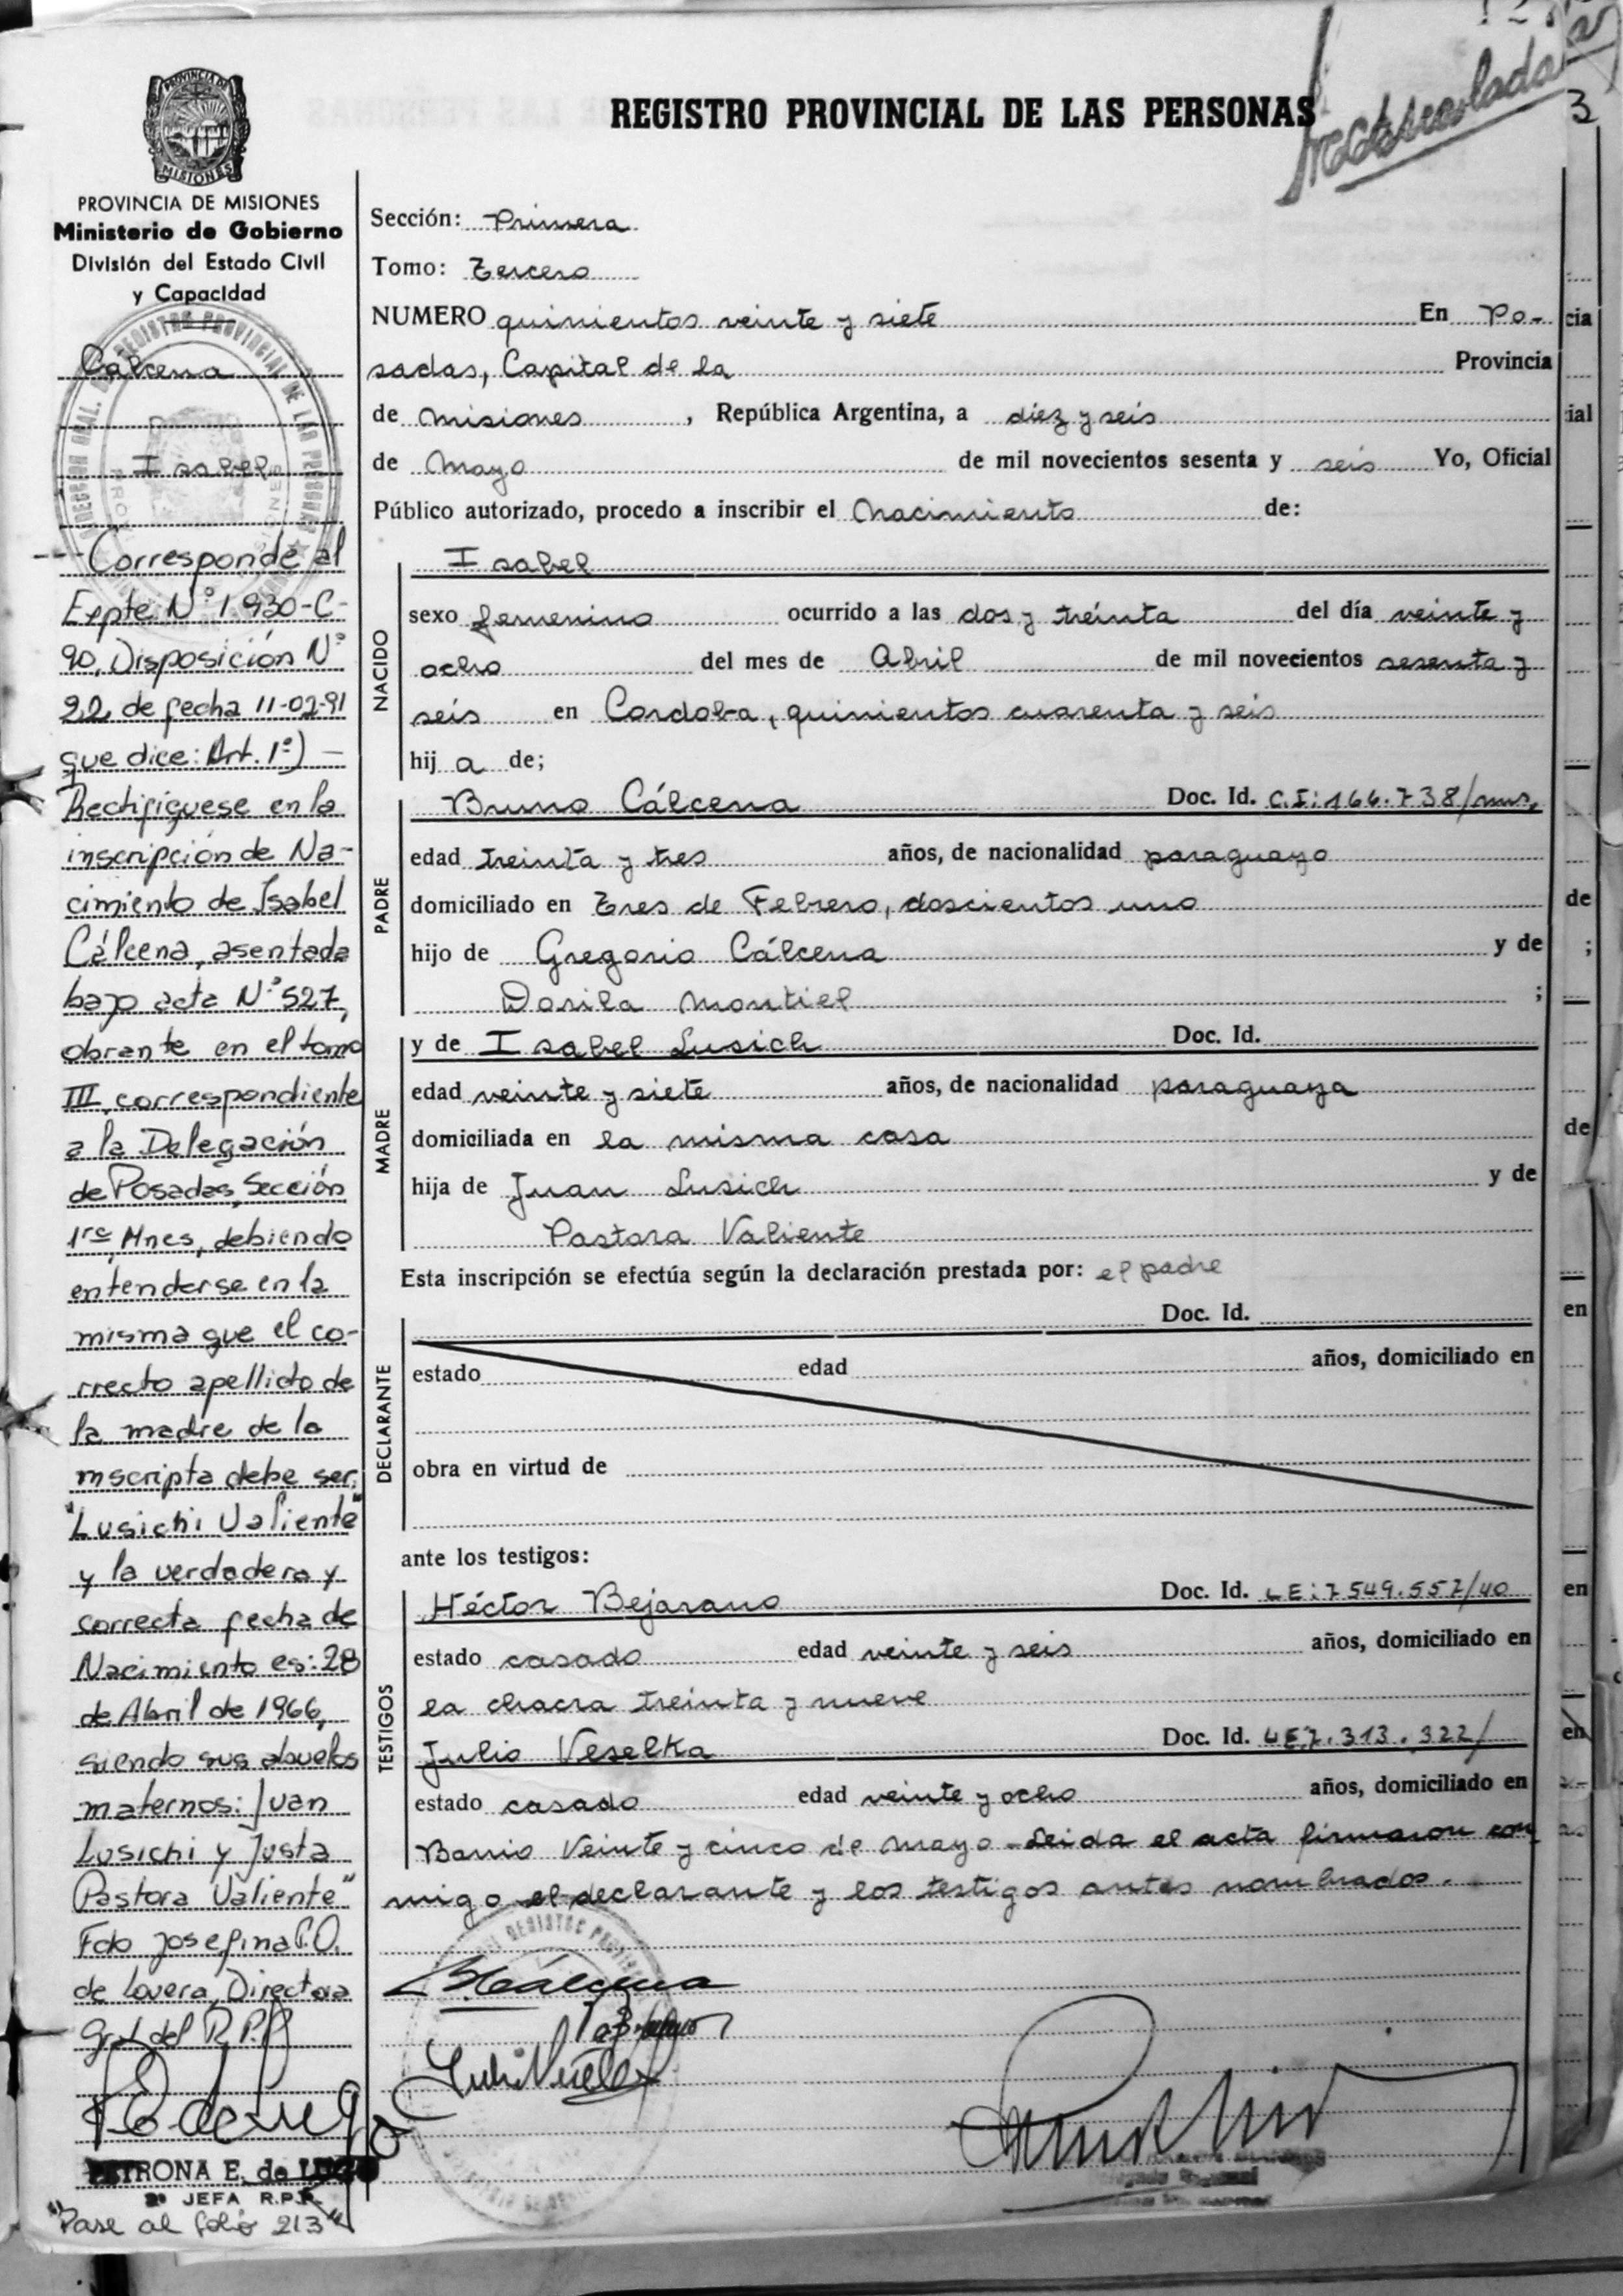 REGISTRO PROVINCIAL DE LAS PERSONAS
3
PROVINCIA DE MISIONES
MISIONES
PROVINCIA DE MISIONES
Ministerio de Gobierno
División del Estado Civil
y Capacidad
Calcena
Isabel
--- Corresponde al
Expte. N° 1.930-C-
90, Disposición N°
22 de fecha 11-02-91
que dice: Art. 1°) —
Rectifíquese en la
inscripción de Na-
cimiento de Isabel
Cálcena, asentada
bajo acta N° 527,
obrante en el tomo
III, correspondiente
a la Delegación
de Posadas, Sección
1ra, Mnes, debiendo
entenderse en la
misma que el co-
rrecto apellido de
la madre de la
inscripta debe ser:
"Lusichi Valiente"
y la verdadera y
correcta fecha de
Nacimiento es: 28
de Abril de 1966,
siendo sus abuelos
maternos: Juan
Lusichi y Justa
Pastora Valiente"
Fdo Josefina C.O.
de Lovera, Directora
Gral del R.P.P.
PETRONA E. de LUGO
2° JEFA R.P.P.
"Pase al folio 213"
Sección: Primera
Tomo: Tercero
NUMERO quinientos veinte y siete En Po-
sadas, Capital de la Provincia
de Misiones, República Argentina, a diez y seis
de Mayo de mil novecientos sesenta y seis Yo, Oficial
Público autorizado, procedo a inscribir el Nacimiento de:
NACIDO
Isabel
sexo femenino ocurrido a las dos y treinta del día veinte y
ocho del mes de Abril de mil novecientos sesenta y
seis en Cordoba, quinientos cuarenta y seis
hij a de;
PADRE
Bruno Cálcena Doc. Id. C.I: 166.738/mns,
edad treinta y tres años, de nacionalidad paraguayo
domiciliado en Tres de Febrero, doscientos uno
hijo de Gregorio Cálcena y de
Dorila Montiel ;
MADRE
y de Isabel Lusich Doc. Id.
edad veinte y siete años, de nacionalidad paraguaya
domiciliada en la misma casa
hija de Juan Lusich y de
Pastora Valiente
Esta inscripción se efectúa según la declaración prestada por: el padre
DECLARANTE
Doc. Id.
estado edad años, domiciliado en
obra en virtud de
ante los testigos:
TESTIGOS
Héctor Bejarano Doc. Id. LE: 7 549.557/40
estado casado edad veinte y seis años, domiciliado en
la chacra treinta y nueve
Julio Veselka Doc. Id. LE 7.313.322/
estado casado edad veinte y ocho años, domiciliado en
Barrio Veinte y cinco de Mayo - Leida el acta firmaron con
migo el declarante y los testigos antes nombrados.
BCálcena
cia
ial
de
;
de
en
en
en